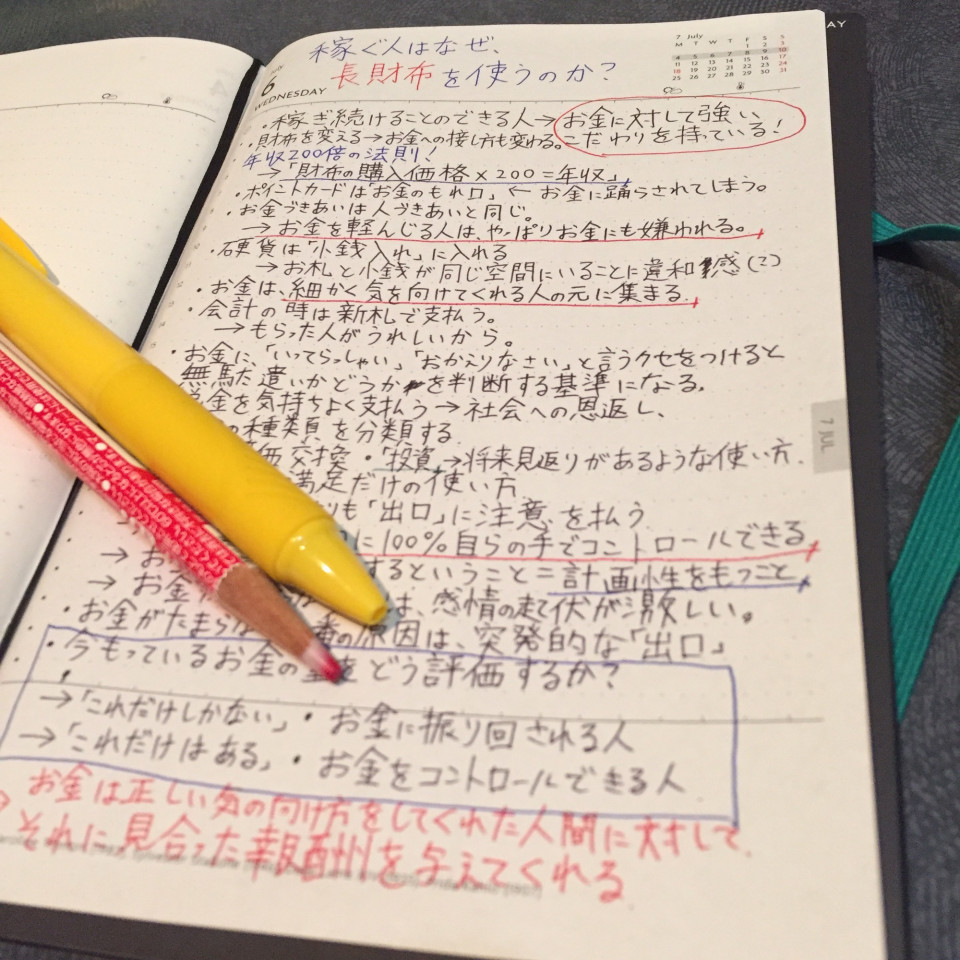 稼ぐ人はなぜ、
長財布を使うのか?
7 July
M T W T F S S
1 2 3
4 5 6 7 8 9 10
11 12 13 14 15 16 17
18 19 20 21 22 23 24
25 26 27 28 29 30 31
6
WEDNESDAY
・稼ぎ続けることのできる人→お金に対して強い
こだわりを持っている!
・財布を変える→お金への接し方も変わる。
年収200倍の法則!
→「財布の購入価格×200=年収」
・ポイントカードは「お金のもれ口」←お金に踊らされてしまう。
・お金づきあいは人づきあいと同じ。
→お金を軽んじる人は、やっぱりお金にも嫌われる。
・硬貨は「小銭入れ」に入れる
→お札と小銭が同じ空間にいることに違和感
・お金は、細かく気を向けてくれる人の元に集まる
・会計の時は新札で支払う。
→もらった人がうれしいから。
・お金に、「いってらっしゃい」「おかえりなさい」と言うクセをつけると
無駄遣いかどうかを判断する基準になる。
金を気持ちよく支払う→社会への恩返し、
の種類を分類する
価交換・「投資」→将来見返りがあるような使い方.
満足だけの使い方
も「出口」に注意を払う
に100%自らの手でコントロールできる
→お
するということ=計画性をもつこと
→お金
は、感情の起伏が激しい。
・お金がたまらな
番の原因は、突発的な「出口」
・今もっているお金の
をどう評価するか?
→「これだけしかない」・お金に振り回される人
→「これだけはある」・お金をコントロールできる人
お金は正しい気の向け方をしてくれた人間に対して、
それに見合った報酬を与えてくれる
7 JUL